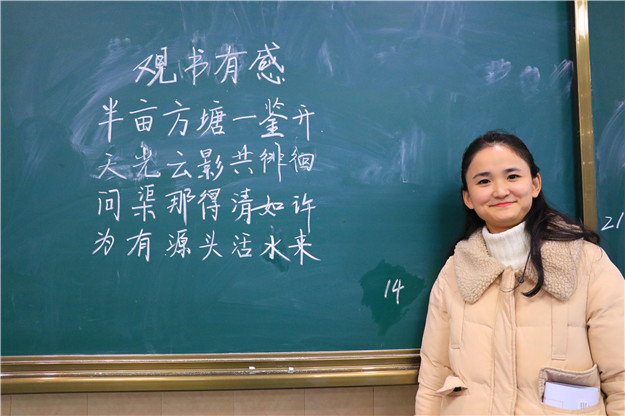 观书有感
半亩方塘一鉴开
天光云影共徘徊
问渠那得清如许
为有源头活水来
14
21